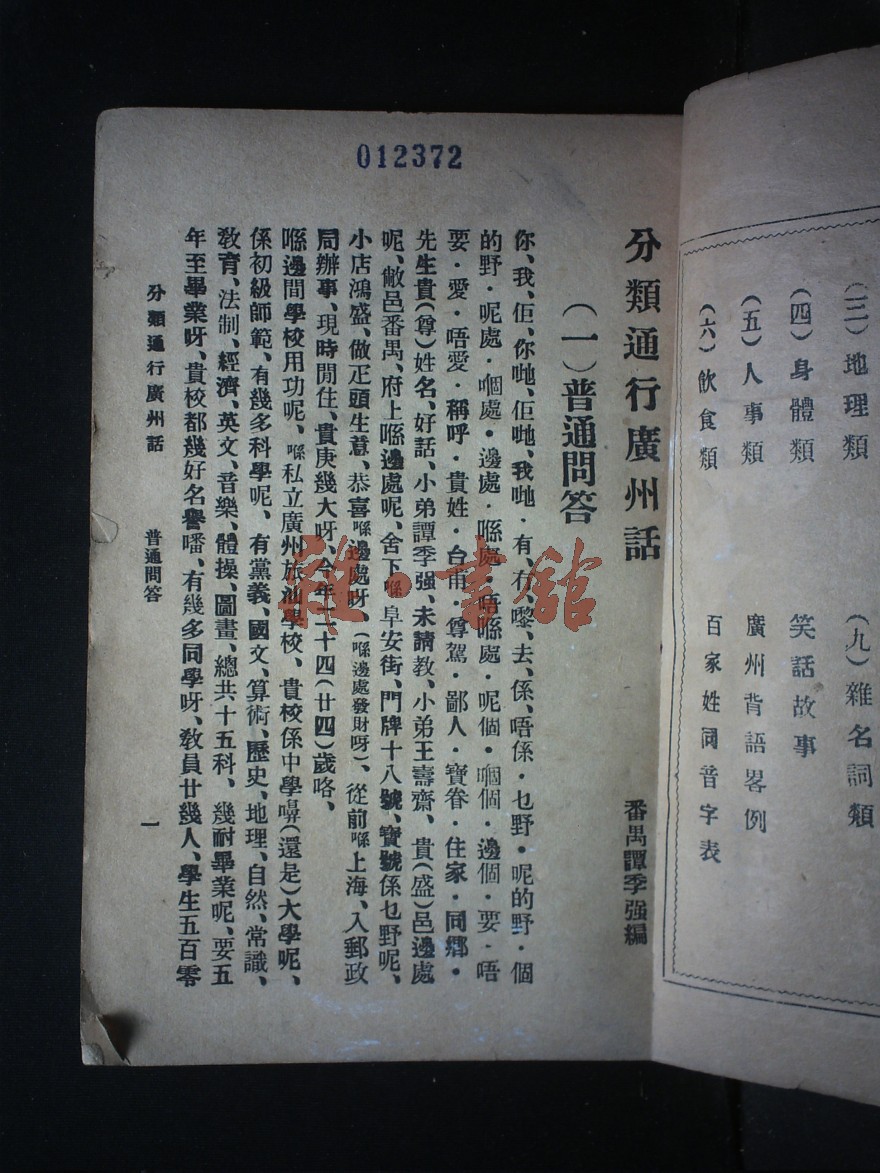 (三)地理類
(九)雜名詞類
(四)身體類
笑話故事
(五)人事類
廣州背語畧例
(六)飲食類
百家姓同音字表
012372
分類通行廣州話
番禺譚季强編
(一)普通問答
你、我、佢、你哋、佢哋、我哋·有、冇、嚟、去、係、唔係·乜野·呢的野·個
的野·呢處·嗰處·邊處·喺處·唔喺處·呢個·嗰個·邊個·要·唔
要·愛·唔愛·稱呼·貴姓·台甫·尊駕·鄙人·寶眷·住家·同鄉·
先生貴(尊)姓名、好話、小弟譚季强、未請教、小弟王壽齋、貴(盛)邑邊處
呢、敝邑番禺、府上喺邊處呢、舍下喺阜安街、門牌十八號、寶號係乜野呢、
小店鴻盛、做疋頭生意、恭喜喺邊處呀、(喺邊處發財呀)、從前喺上海、入郵政
局辦事、現時閒住、貴庚幾大呀、今年二十四(廿四)歲咯、
喺邊間學校用功呢、喺私立廣州旅汕學校、貴校係中學嚊(還是)大學呢、
係初級師範、有幾多科學呢、有黨義、國文、算術、歷史、地理、自然、常識、
敎育、法制、經濟、英文、音樂、體操、圖畫、總共十五科、幾耐畢業呢、要五
年至畢業呀、貴校都幾好名譽噃、有幾多同學呀、敎員廿幾人、學生五百零
分類通行廣州話 普通問答 一
雜·書館